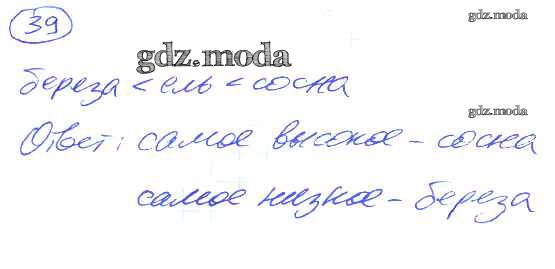 39
gdz.moda
gdz.moda
береза < ель < сосна
gdz.moda
Ответ: самое высокое - сосна
самое низкое - береза